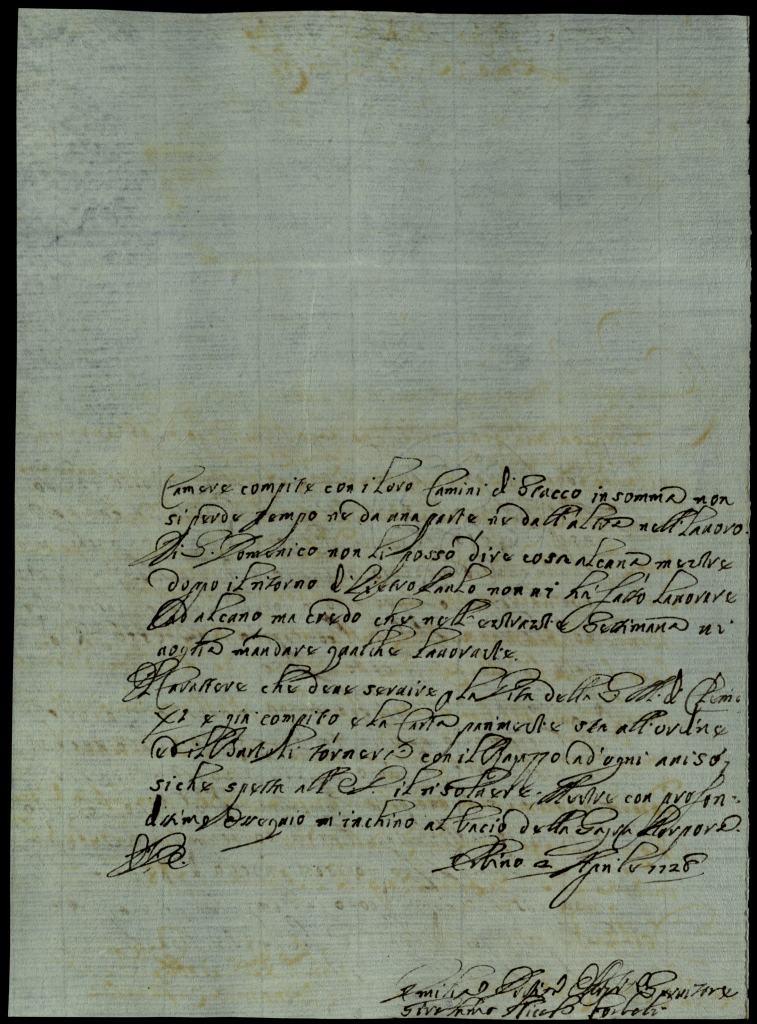 Camere compite con i loro Camini di Stucco in somma non
si perde tempo ne da una parte ne dall'altra nell lavoro.
Di S. Domenico non li posso dire cosa alcuna mentre
doppo il ritorno di Pietro Paulo non vi hà fatto lavorare
ad alcuno ma credo che nell'entrante Settimana vi
voglia mandare qualche lavorante.
Il Carattere che deve servire la Vita della di Clem:
XI è già compito e la Carta parimente sta all'ordine
ed il tornerà con il Ragazzo ad ogni aviso,
siche spetta all il risolvere, Mentre con profon-
dissimo ossequio m'inchino al bacio della Porpora.
Urbino 2 Aprile 1728
Servitore